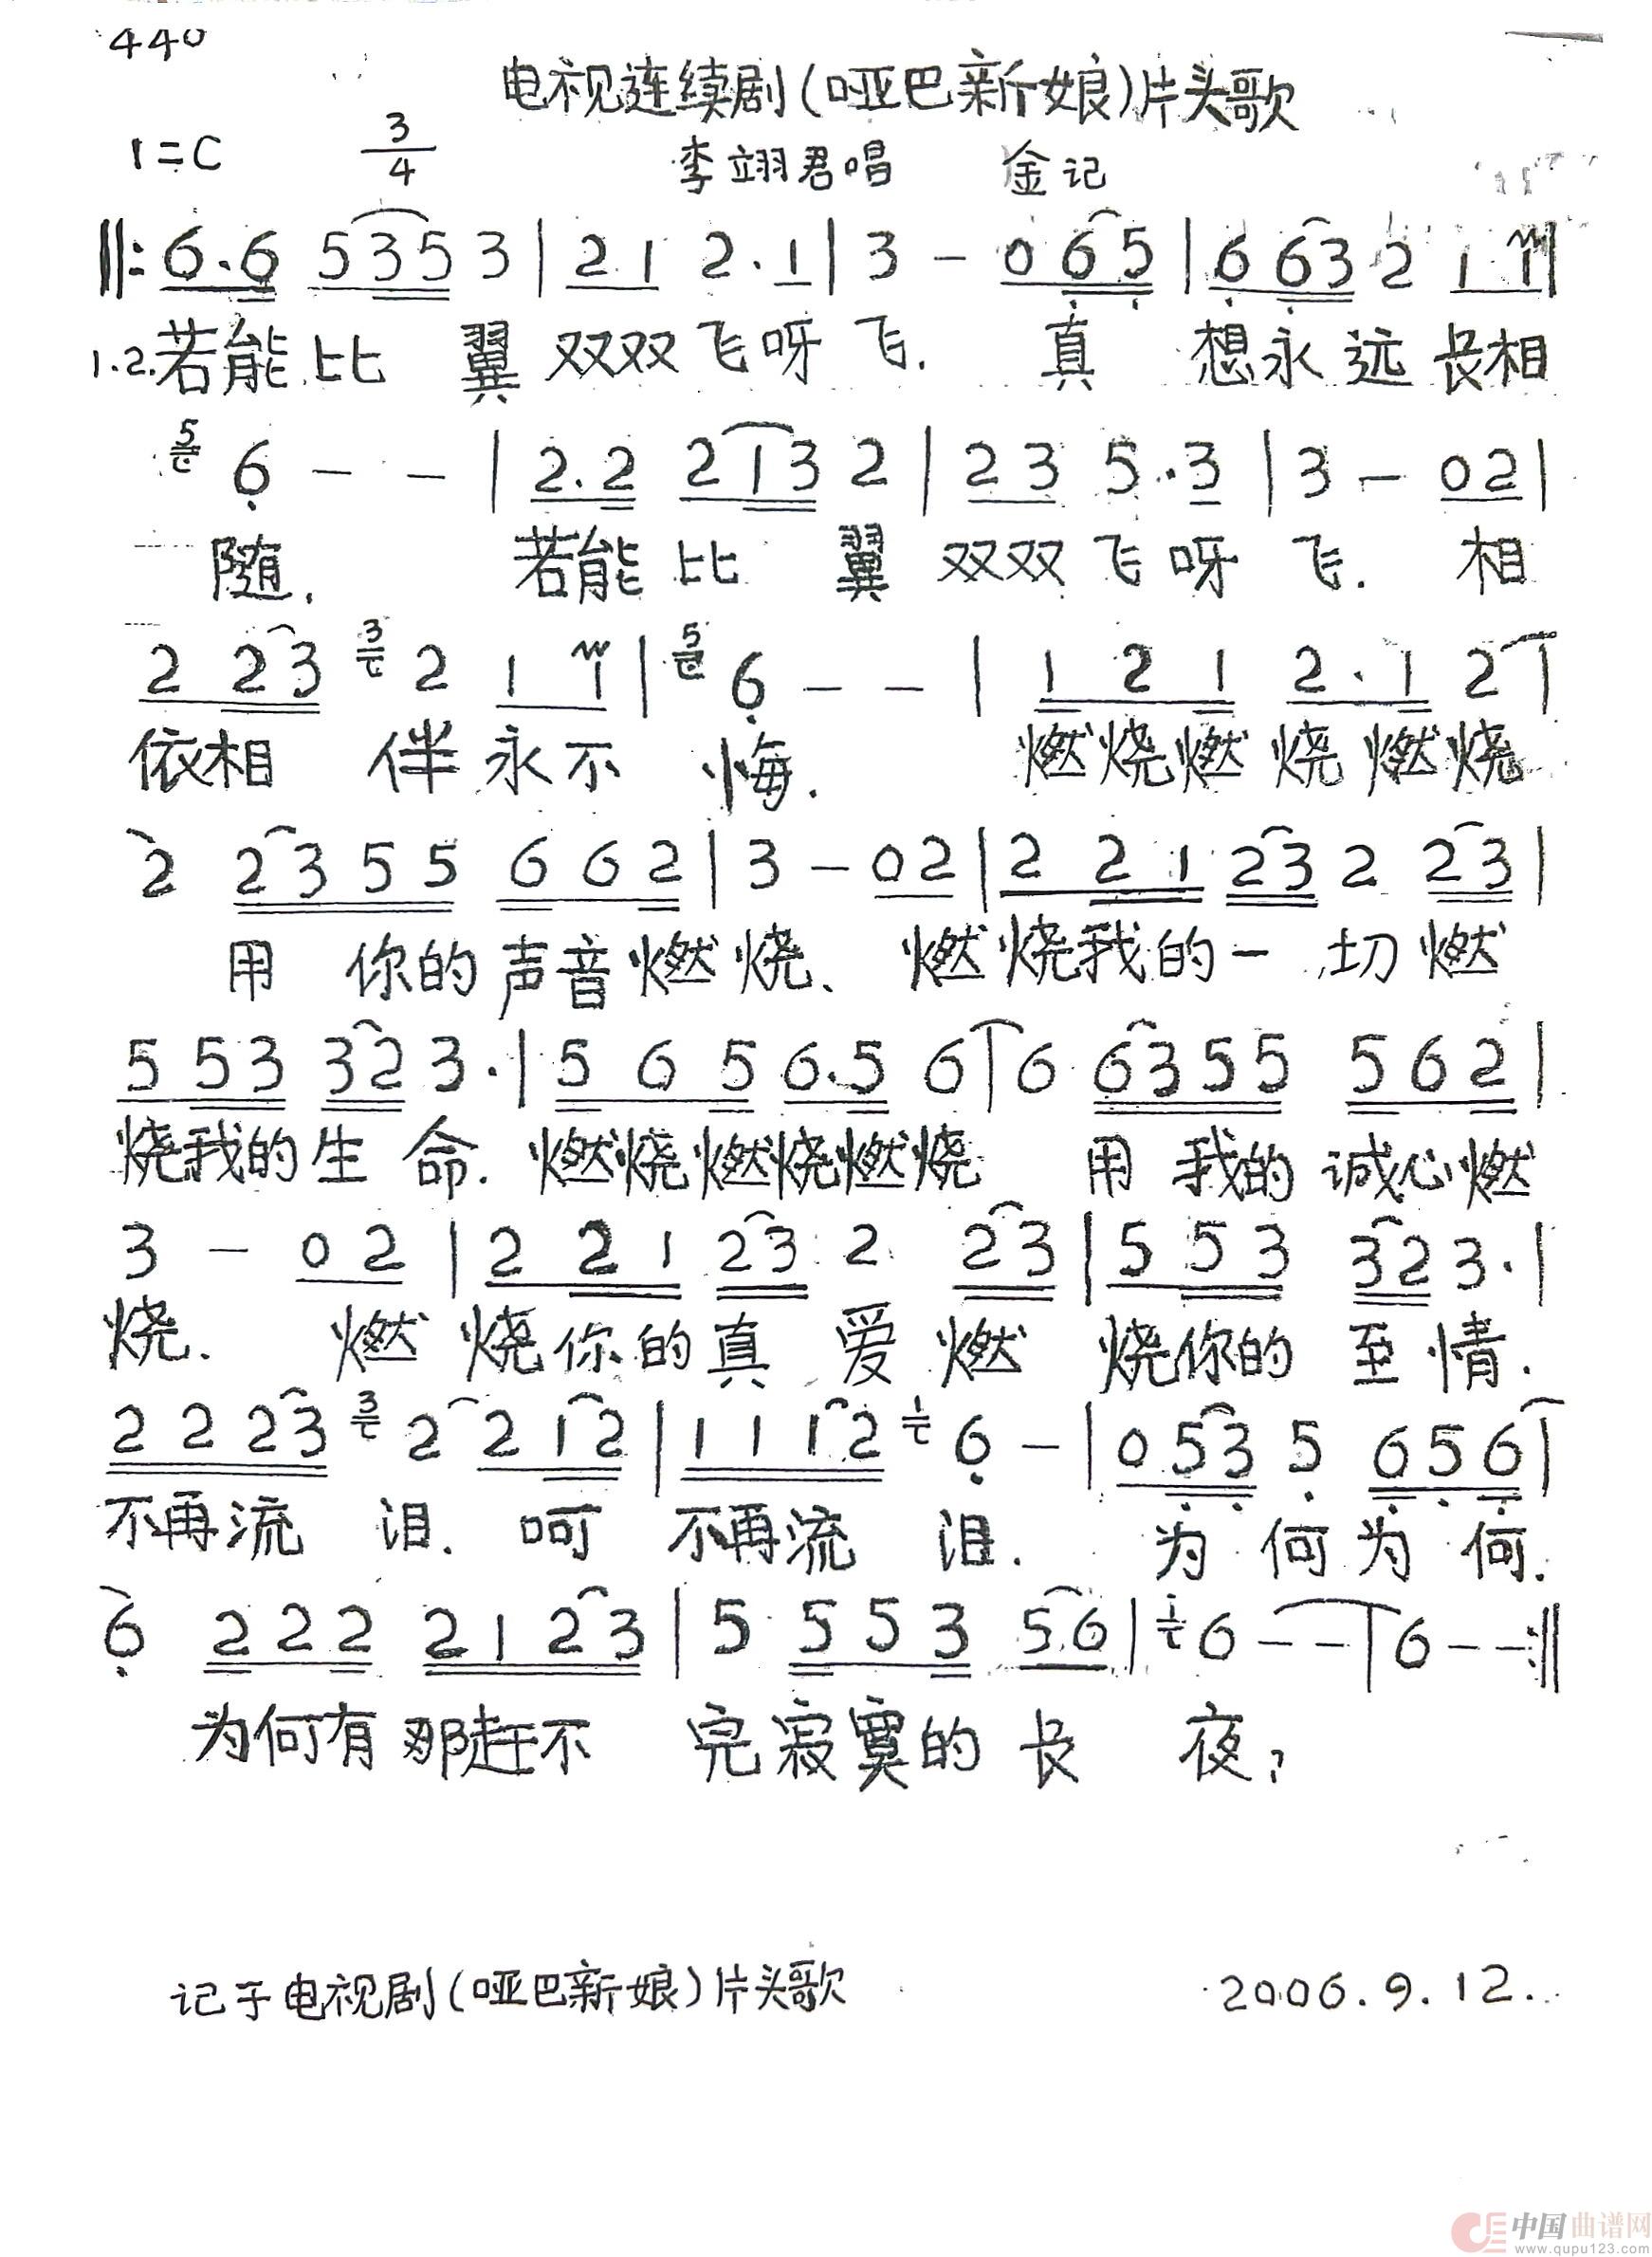 440
电视连续剧(哑巴新娘)片头歌
1=C 3/4 李翊君唱 金记
‖: 6.6 5353 | 21 2.1 | 3 - 065 | 663 2 11 |
1.2.若能比翼双双飞呀飞. 真想永远长相
5 6 - - | 2.2 2132 | 23 5.3 | 3 - 02 |
随. 若能比翼双双飞呀飞. 相
2 23 3 2 11 | 5 6 - - | 121 2.1 2 |
依相伴永不悔. 燃烧燃烧燃烧
2 2355 662 | 3 - 02 | 221 23 2 23 |
用你的声音燃烧、燃烧我的一切燃
553 32 3. | 565 6.5 6 | 6 6355 562 |
烧我的生命. 燃烧燃烧燃烧 用我的诚心燃
3 - 02 | 221 23 2 23 | 553 32 3. |
烧. 燃烧你的真爱燃烧你的至情.
2223 3 2 212 | 1112 1 6 - | 053 5 656 |
不再流泪. 呵不再流泪. 为何为何.
6 222 2123 | 5 553 56 | 1 6 - - | 6 - - :‖
为何有那赶不完寂寞的长夜?
记于电视剧(哑巴新娘)片头歌 2006.9.12.
中国曲谱网
www.qupu123.com